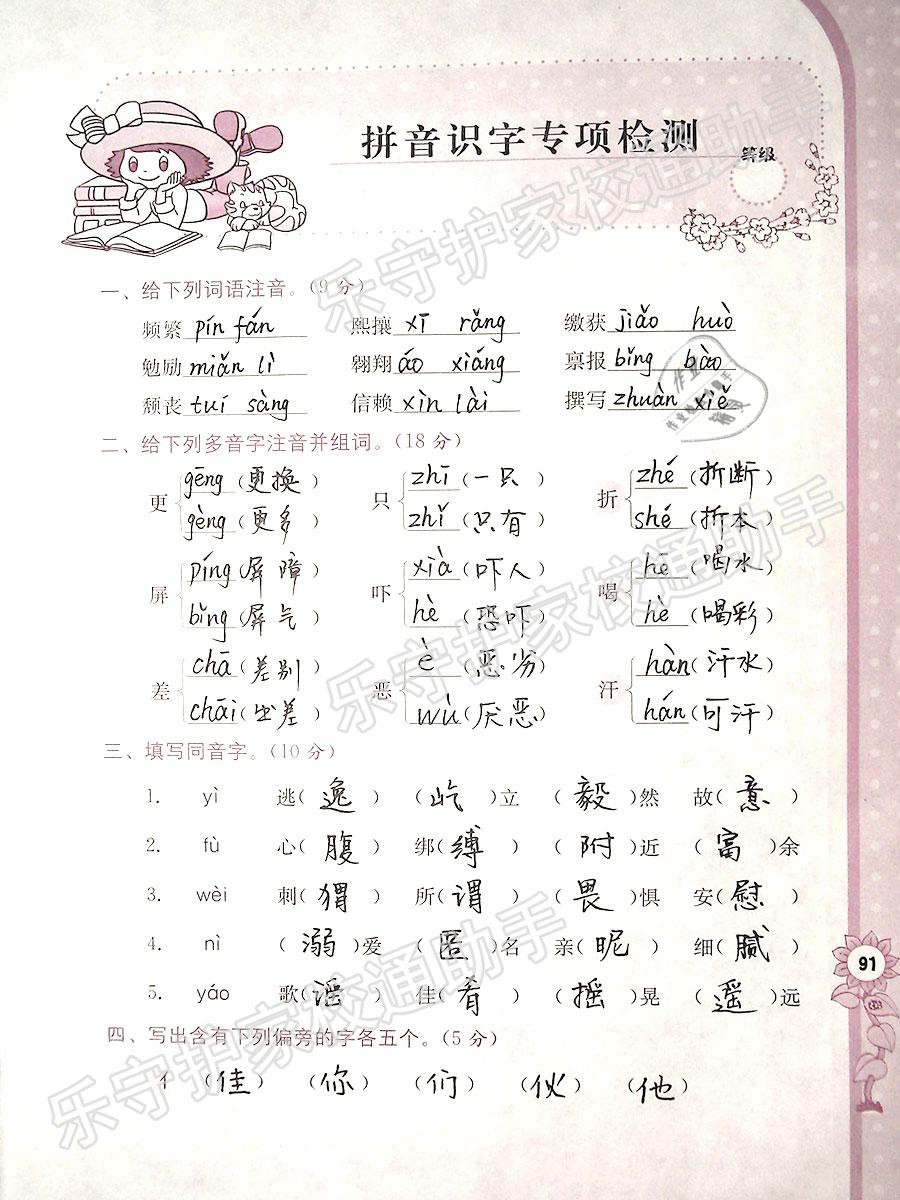 拼音识字专项检测
等级
一、给下列词语注音。(9分)
频繁 pín fán 熙攘 xī rǎng 缴获 jiǎo huò
勉励 miǎn lì 翱翔 áo xiáng 禀报 bǐng bào
颓丧 tuí sàng 信赖 xìn lài 撰写 zhuàn xiě
二、给下列多音字注音并组词。(18分)
更 gēng(更换) 只 zhī(一只) 折 zhé(折断)
gèng(更多) zhǐ(只有) shé(折本)
屏 píng(屏障) 吓 xià(吓人) 喝 hē(喝水)
bǐng(屏气) hè(恐吓) hè(喝彩)
差 chā(差别) 恶 è(恶劣) 汗 hàn(汗水)
chāi(出差) wù(厌恶) hán(可汗)
三、填写同音字。(10分)
1. yì 逃(逸) (屹)立 (毅)然 故(意)
2. fù 心(腹) 绑(缚) (附)近 (富)余
3. wèi 刺(猬) 所(谓) (畏)惧 安(慰)
4. nì (溺)爱 (匿)名 亲(昵) 细(腻)
5. yáo 歌(谣) 佳(肴) (摇)晃 (遥)远
四、写出含有下列偏旁的字各五个。(5分)
亻 (佳) (你) (们) (伙) (他)
91
乐守护家校通助手
乐守护家校通助手
乐守护家校通助手